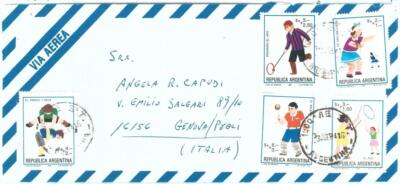 VIA AEREA
SRA.
ANGELA R. CAPUDI
V. EMILIO SALGARI 89/10
16156 GENOVA/PEGLI
(ITALIA)
REPUBLICA ARGENTINA
REPUBLICA ARGENTINA
REPUBLICA ARGENTINA
REPUBLICA ARGENTINA
REPUBLICA ARGENTINA